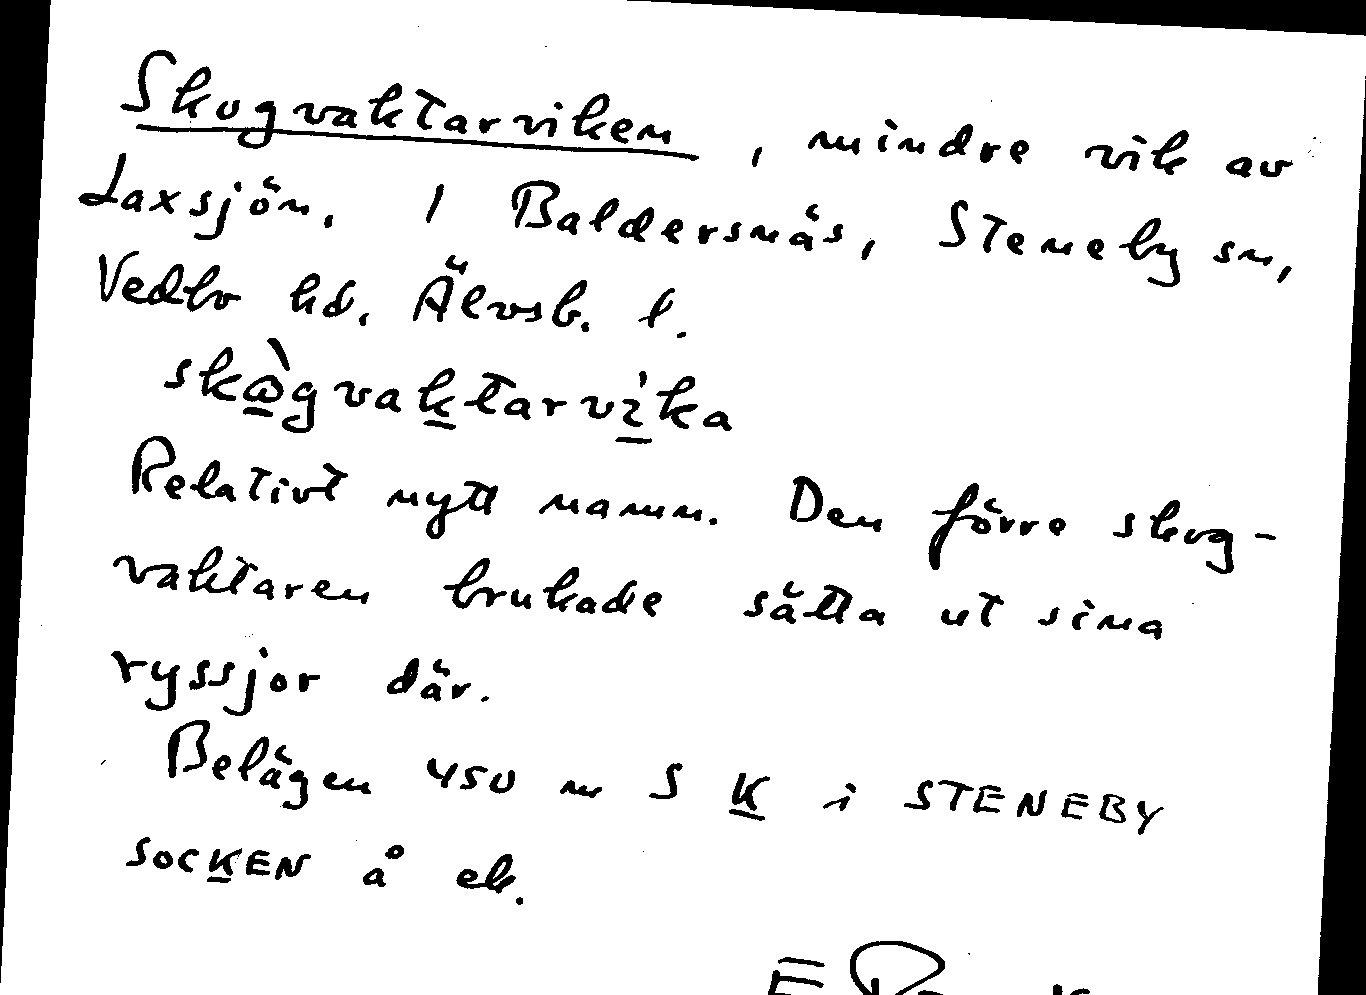 Skogvaktarviken, mindre vik av
Laxsjön. 1 Baldersnäs, Steneby sn,
Vedbo hd. Älvsb. l.
skògvaktarvika
Relativt nytt namn. Den förre skog-
vaktaren brukade sätta ut sina
ryssjor där.
Belägen 450 m S K i STENEBY
SOCKEN å ek.